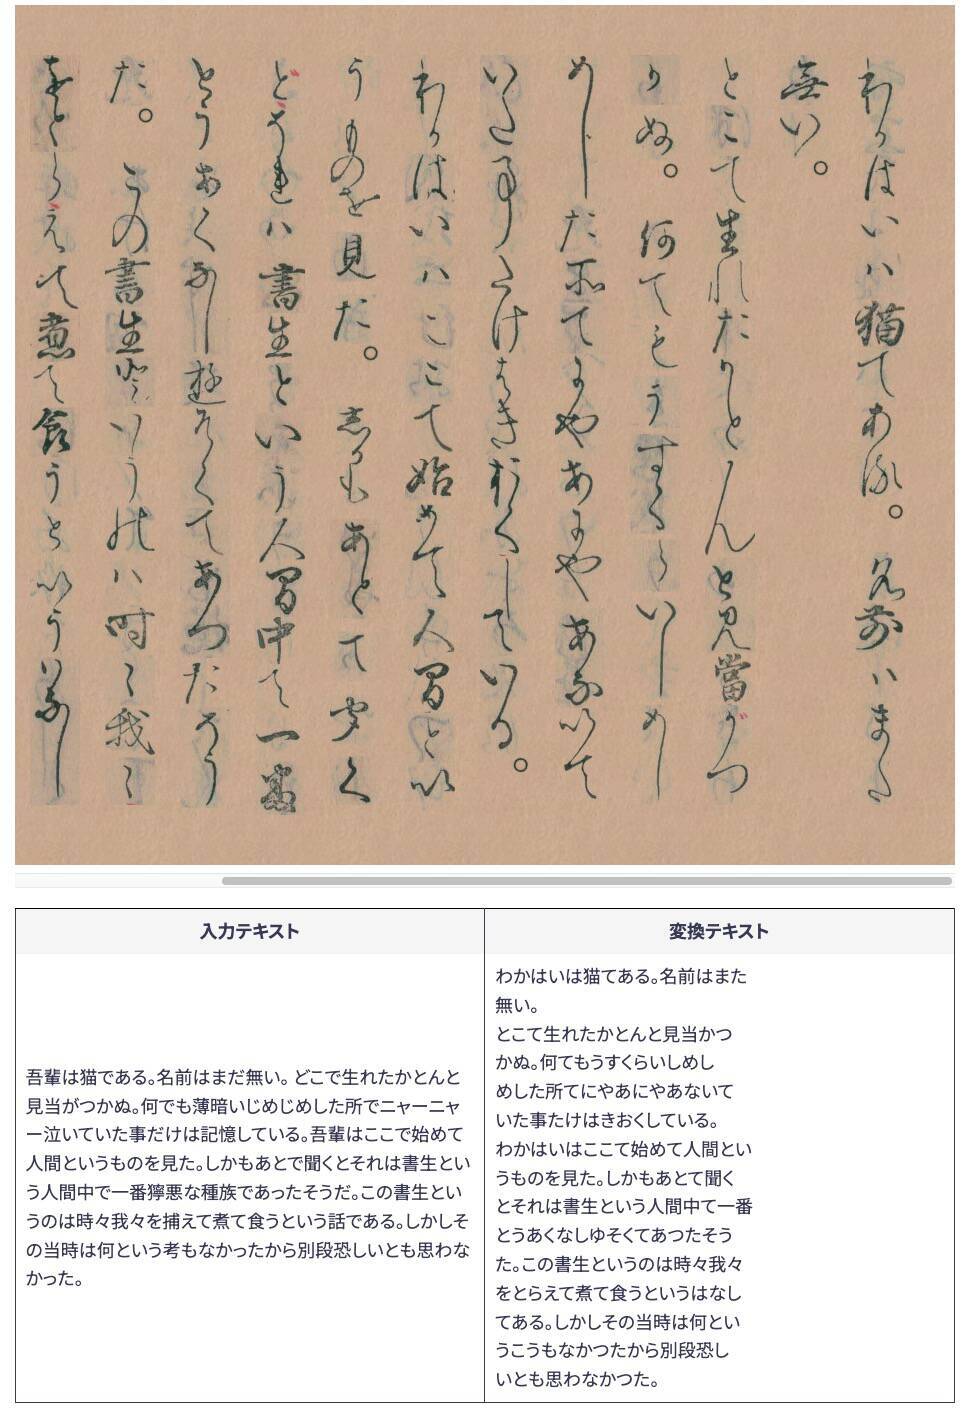 わかはいハ猫てある。名前ハまた
無い。
とこて生れたかとんと見當がつ
かぬ。何てもうすくらいしめし
めした所てにやあにやあないて
いた事たけはきおくしている。
わかはいハここて始めて人間とい
うものを見た。しかもあとて聞く
とそれハ書生という人間中て一番
とうあくなし遊そくてあつたそう
た。この書生というのハ時々我々
をとらえて煮て食うというはなし
入力テキスト
変換テキスト
吾輩は猫である。名前はまだ無い。 どこで生れたかとんと
見当がつかぬ。何でも薄暗いじめじめした所でニャーニャ
ー泣いていた事だけは記憶している。吾輩はここで始めて
人間というものを見た。しかもあとで聞くとそれは書生とい
う人間中で一番獰悪な種族であったそうだ。この書生とい
うのは時々我々を捕えて煮て食うという話である。しかしそ
の当時は何という考もなかったから別段恐しいとも思わな
かった。
わかはいは猫てある。名前はまた
無い。
とこて生れたかとんと見当かつ
かぬ。何てもうすくらいしめし
めした所てにやあにやあないて
いた事たけはきおくしている。
わかはいはここて始めて人間とい
うものを見た。しかもあとて聞く
とそれは書生という人間中て一番
とうあくなしゆそくてあつたそう
た。この書生というのは時々我々
をとらえて煮て食うというはなし
てある。しかしその当時は何とい
うこうもなかつたから別段恐し
いとも思わなかつた。